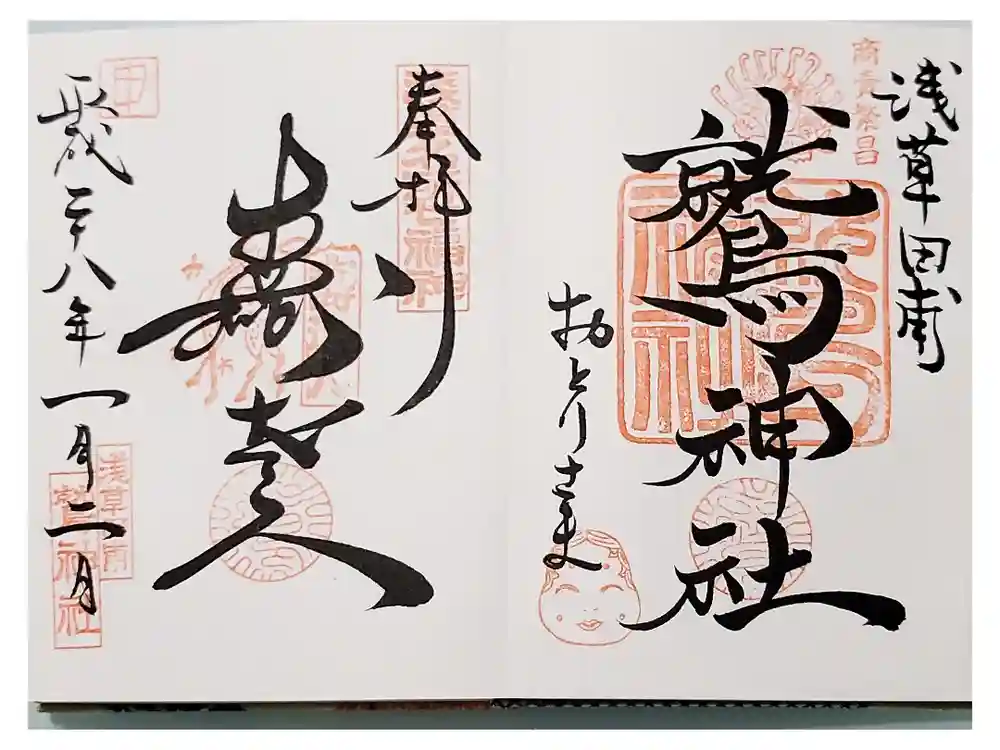 浅草田甫
商売繁昌
鷲神社
おとりさま
奉拝
壽老人
平成二十八年一月二日
申
浅草田甫
鷲神社